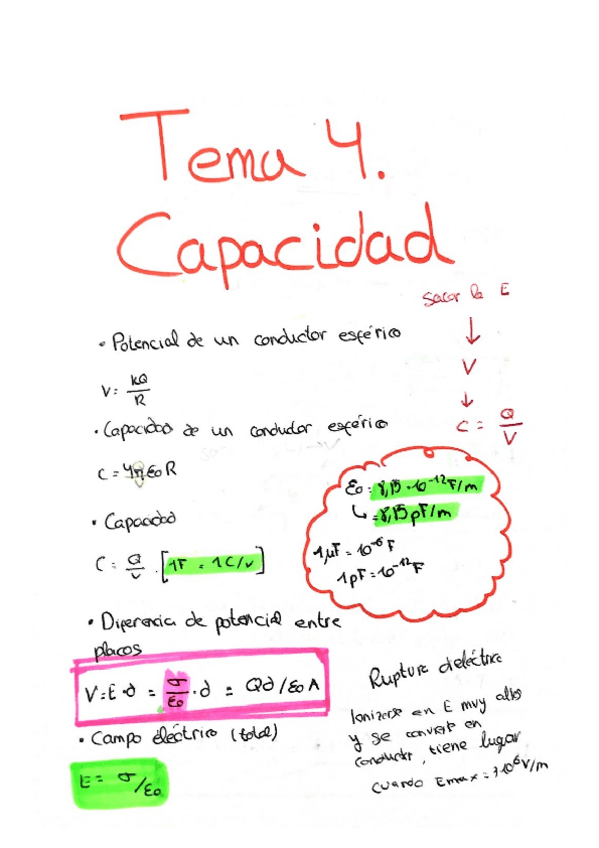 Tema 4.
Capacidad
Sacar la E
↓
V
↓
C = Q/V
• Potencial de un conductor esférico
V = kQ/R
• Capacidad de un conductor esférico
C = 4π ε0 R
• Capacidad
C = Q/V · [1F = 1C/V]
ε0 = 8,15 · 10^-12 F/m
↳ = 8,15 pF/m
1 μF = 10^-6 F
1 pF = 10^-12 F
• Diferencia de potencial entre
placas
V = E · d = σ/ε0 · d = Qd/ε0 A
• Campo eléctrico (total)
E = σ/ε0
Ruptura dieléctrica
Ionizarse en E muy altos
y se convierte en
conductor, tiene lugar
cuando Emax = 3·10^6 V/m